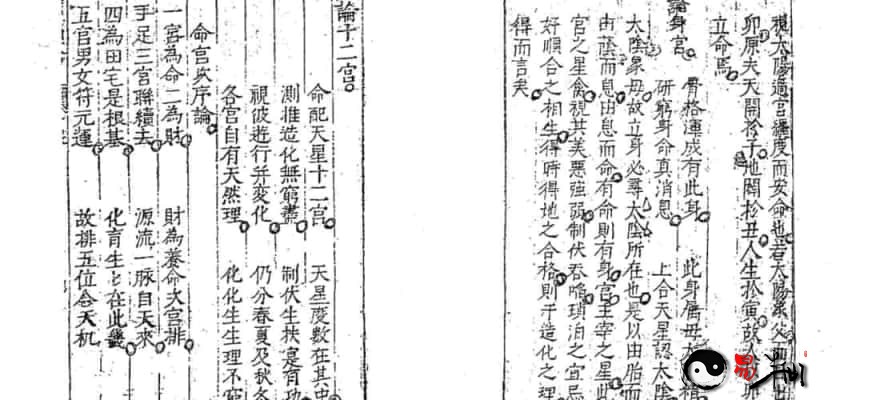 視太陽過宮纏度而安命也若太陽象父
卯原夫天開於子地闢於丑人生於寅故人
立命焉
論身宮
骨格渾成有此身 此身屬毋太
研窮身命真消息 上合天星認太陰
太陰象母故立身必尋太陰所在也是以由胎而
由蔭而息由息而命有命則有身宮主宰之星此
宮之星禽視其美惡強弱制伏吞啗瑣泊之宜忌
好順合之相生得時得地之合格則于造化之理
得而言矣
論十二宮
命配天星十二宮 天星度數在其中
測推造化無窮盡 制伏生扶衰有功
視彼遊行并変化 仍分春夏及秋冬
各宮自有天然理 化化生生理不窮
命宮次序論
一宮為命二為財 財為養命次宮排
手足三宮聯續去 源流一脉自天來
四為田宅是根基 化育生生在此
五宮男女符元運 故排五位合天机